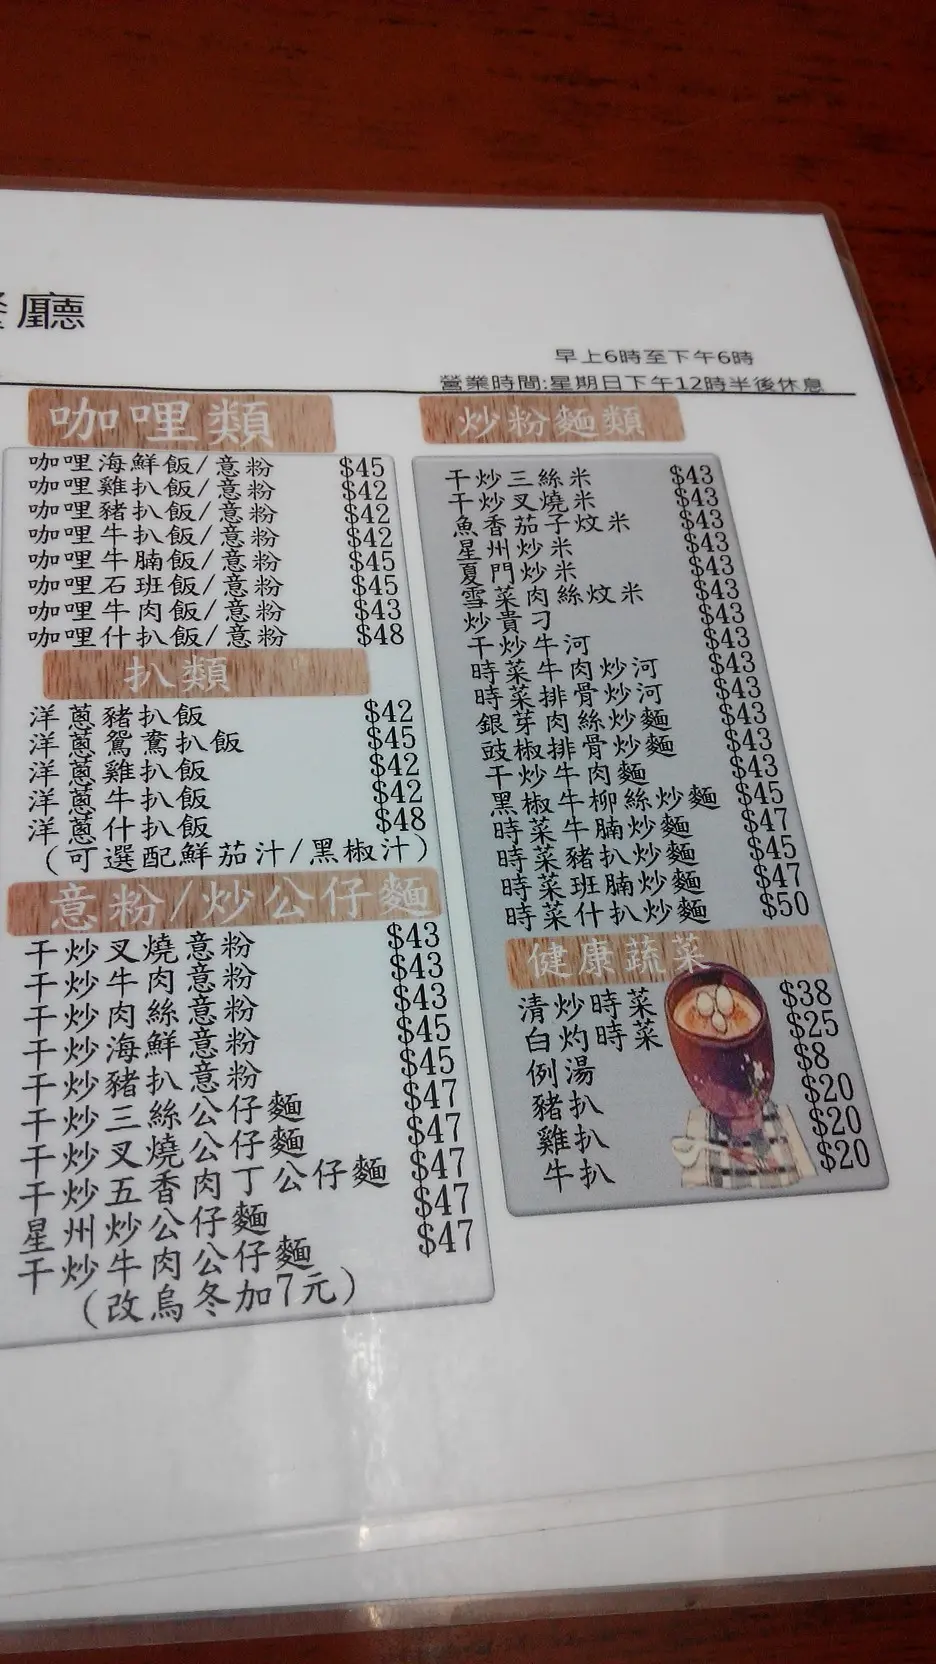 廳
早上6時至下午6時
營業時間:星期日下午12時半後休息
咖哩類
咖哩海鮮飯/意粉 $45
咖哩雞扒飯/意粉 $42
咖哩豬扒飯/意粉 $42
咖哩牛扒飯/意粉 $42
咖哩牛腩飯/意粉 $45
咖哩石班飯/意粉 $45
咖哩牛肉飯/意粉 $43
咖哩什扒飯/意粉 $48
扒類
洋蔥豬扒飯 $42
洋蔥鴛鴦扒飯 $45
洋蔥雞扒飯 $42
洋蔥牛扒飯 $42
洋蔥什扒飯 $48
(可選配鮮茄汁/黑椒汁)
意粉/炒公仔麵
干炒叉燒意粉 $43
干炒牛肉意粉 $43
干炒肉絲意粉 $43
干炒海鮮意粉 $45
干炒豬扒意粉 $45
干炒三絲公仔麵 $47
干炒叉燒公仔麵 $47
干炒五香肉丁公仔麵 $47
星州炒公仔麵 $47
干炒牛肉公仔麵 $47
(改烏冬加7元)
炒粉麵類
干炒三絲米 $43
干炒叉燒米 $43
魚香茄子炆米 $43
星州炒米 $43
夏門炒米 $43
雪菜肉絲炆米 $43
炒貴刁 $43
干炒牛河 $43
時菜牛肉炒河 $43
時菜排骨炒河 $43
銀芽肉絲炒麵 $43
豉椒排骨炒麵 $43
干炒牛肉麵 $43
黑椒牛柳絲炒麵 $45
時菜牛腩炒麵 $47
時菜豬扒炒麵 $45
時菜班腩炒麵 $47
時菜什扒炒麵 $50
健康蔬菜
清炒時菜 $38
白灼時菜 $25
例湯 $8
豬扒 $20
雞扒 $20
牛扒 $20